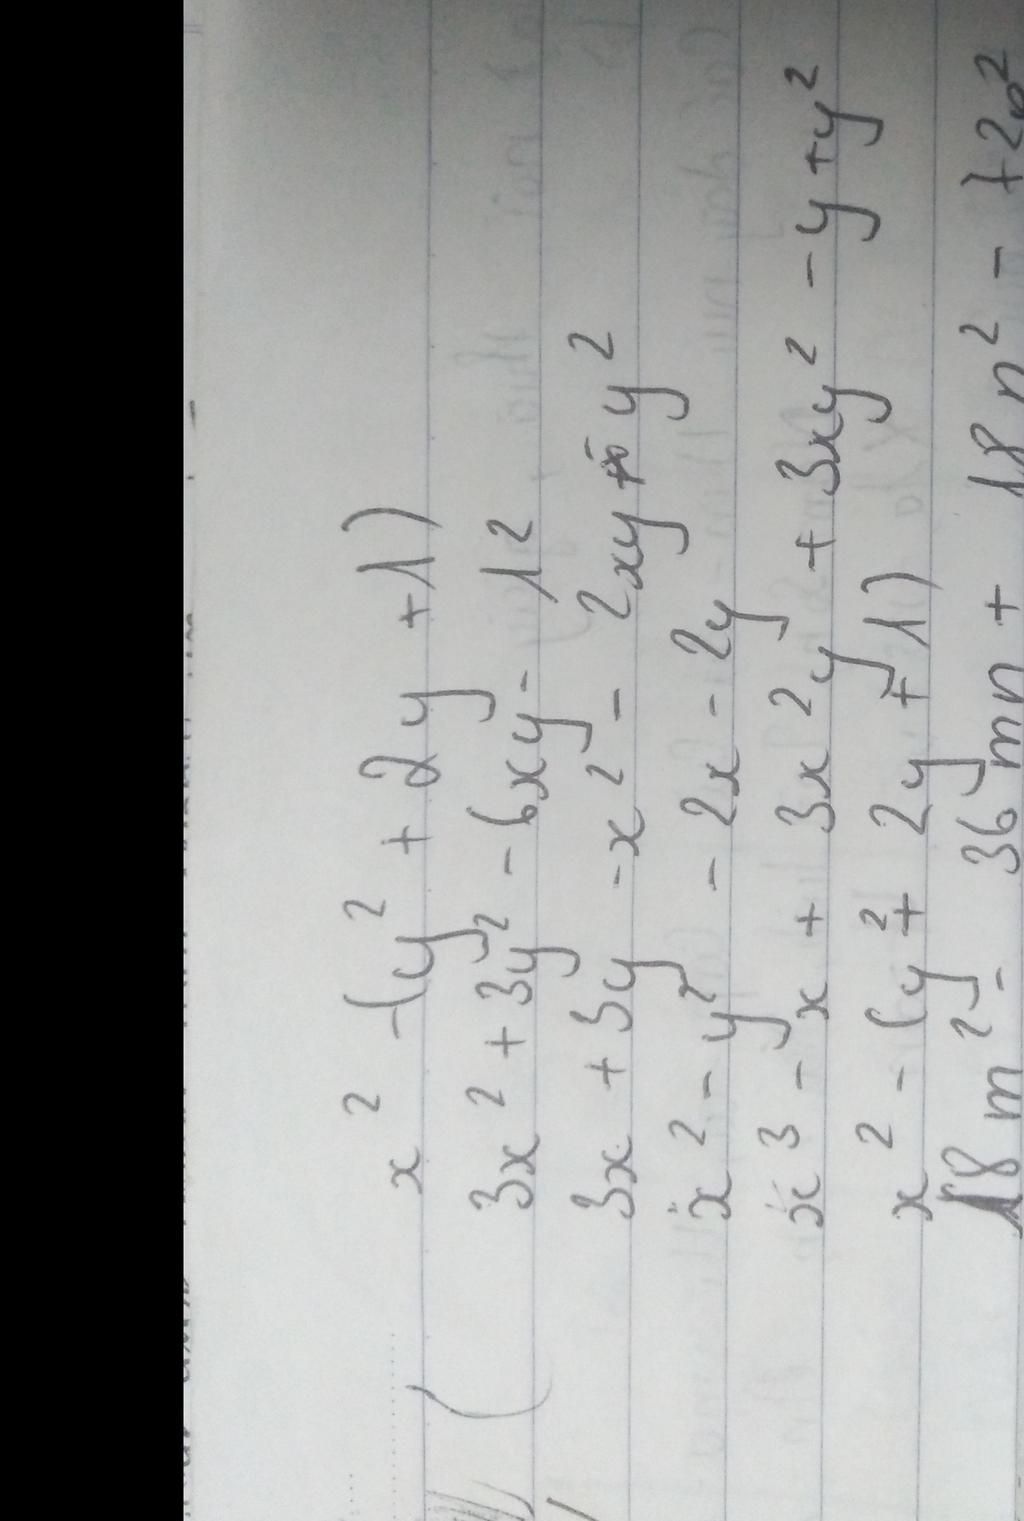 x² - (y² + 2y + 1)
3x² + 3y² - 6xy - 12
3x + 3y - x² - 2xy + y²
x² - y² - 2x - 2y
x³ - x + 3x²y + 3xy² - y + y²
x² - (y² + 2y + 1)
18m² - 36mn + 18n² - 72p²